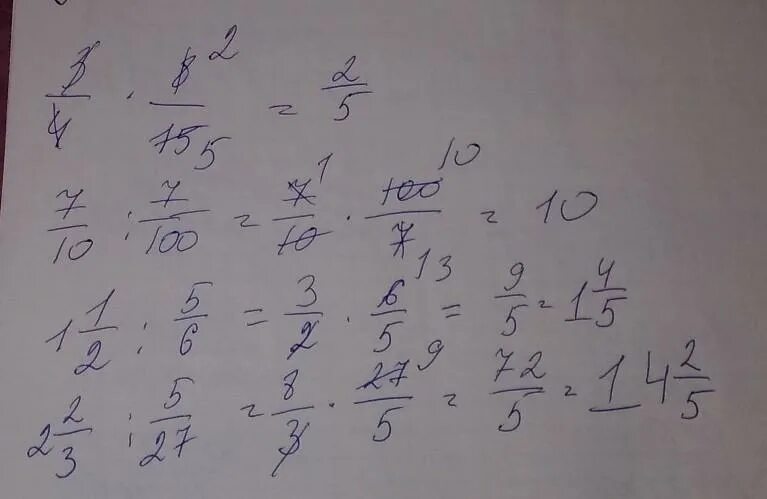 3/4 · 8 2/15 5 = 2/5
7/10 : 7/100 = 7 1/10 · 100 10/7 = 10
1 1/2 : 5/6 = 3/2 · 6 3/5 = 9/5 = 1 4/5
2 2/3 : 5/27 = 8/3 · 27 9/5 = 72/5 = 14 2/5